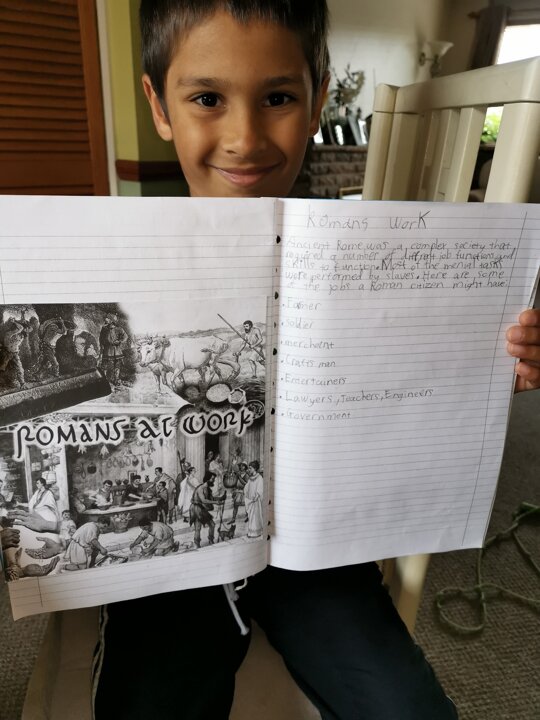 Romans Work
Ancient Rome was a complex society that
required a number of diffrent job functions and
skills to function. Most of the menial tasks
were performed by slaves. Here are some
of the jobs a Roman citizen might have
• Farmer
• Soldier
• merchernt
• Crafts man
• Entertainers
• Lawyers, Teachers, Engineers
• Government
ROMANS AT WORK